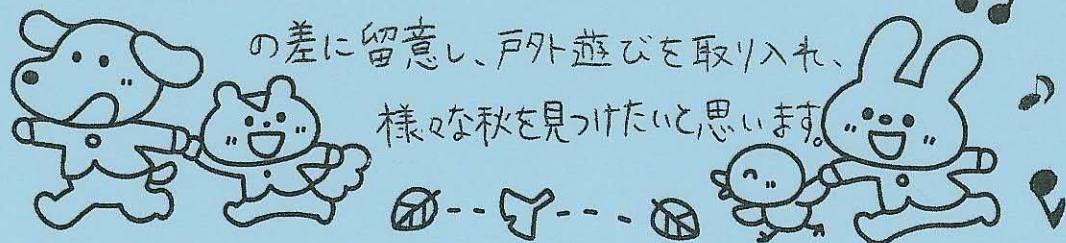 の差に留意し、戸外遊びを取り入れ、
様々な秋を見つけたいと思います。